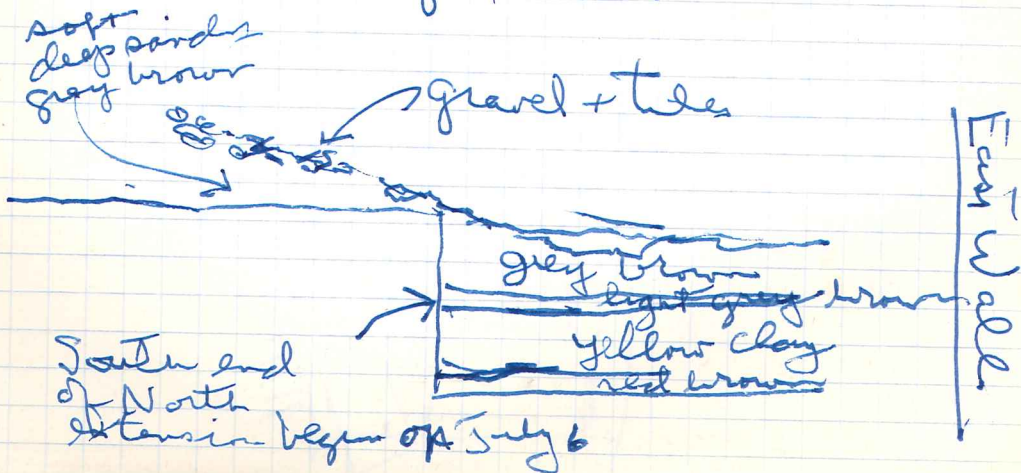 soft
deep sandy
grey brown
gravel + tiles
East Wall
grey brown
light grey brown
yellow clay
red brown
South end
of North
extension begun on July 6